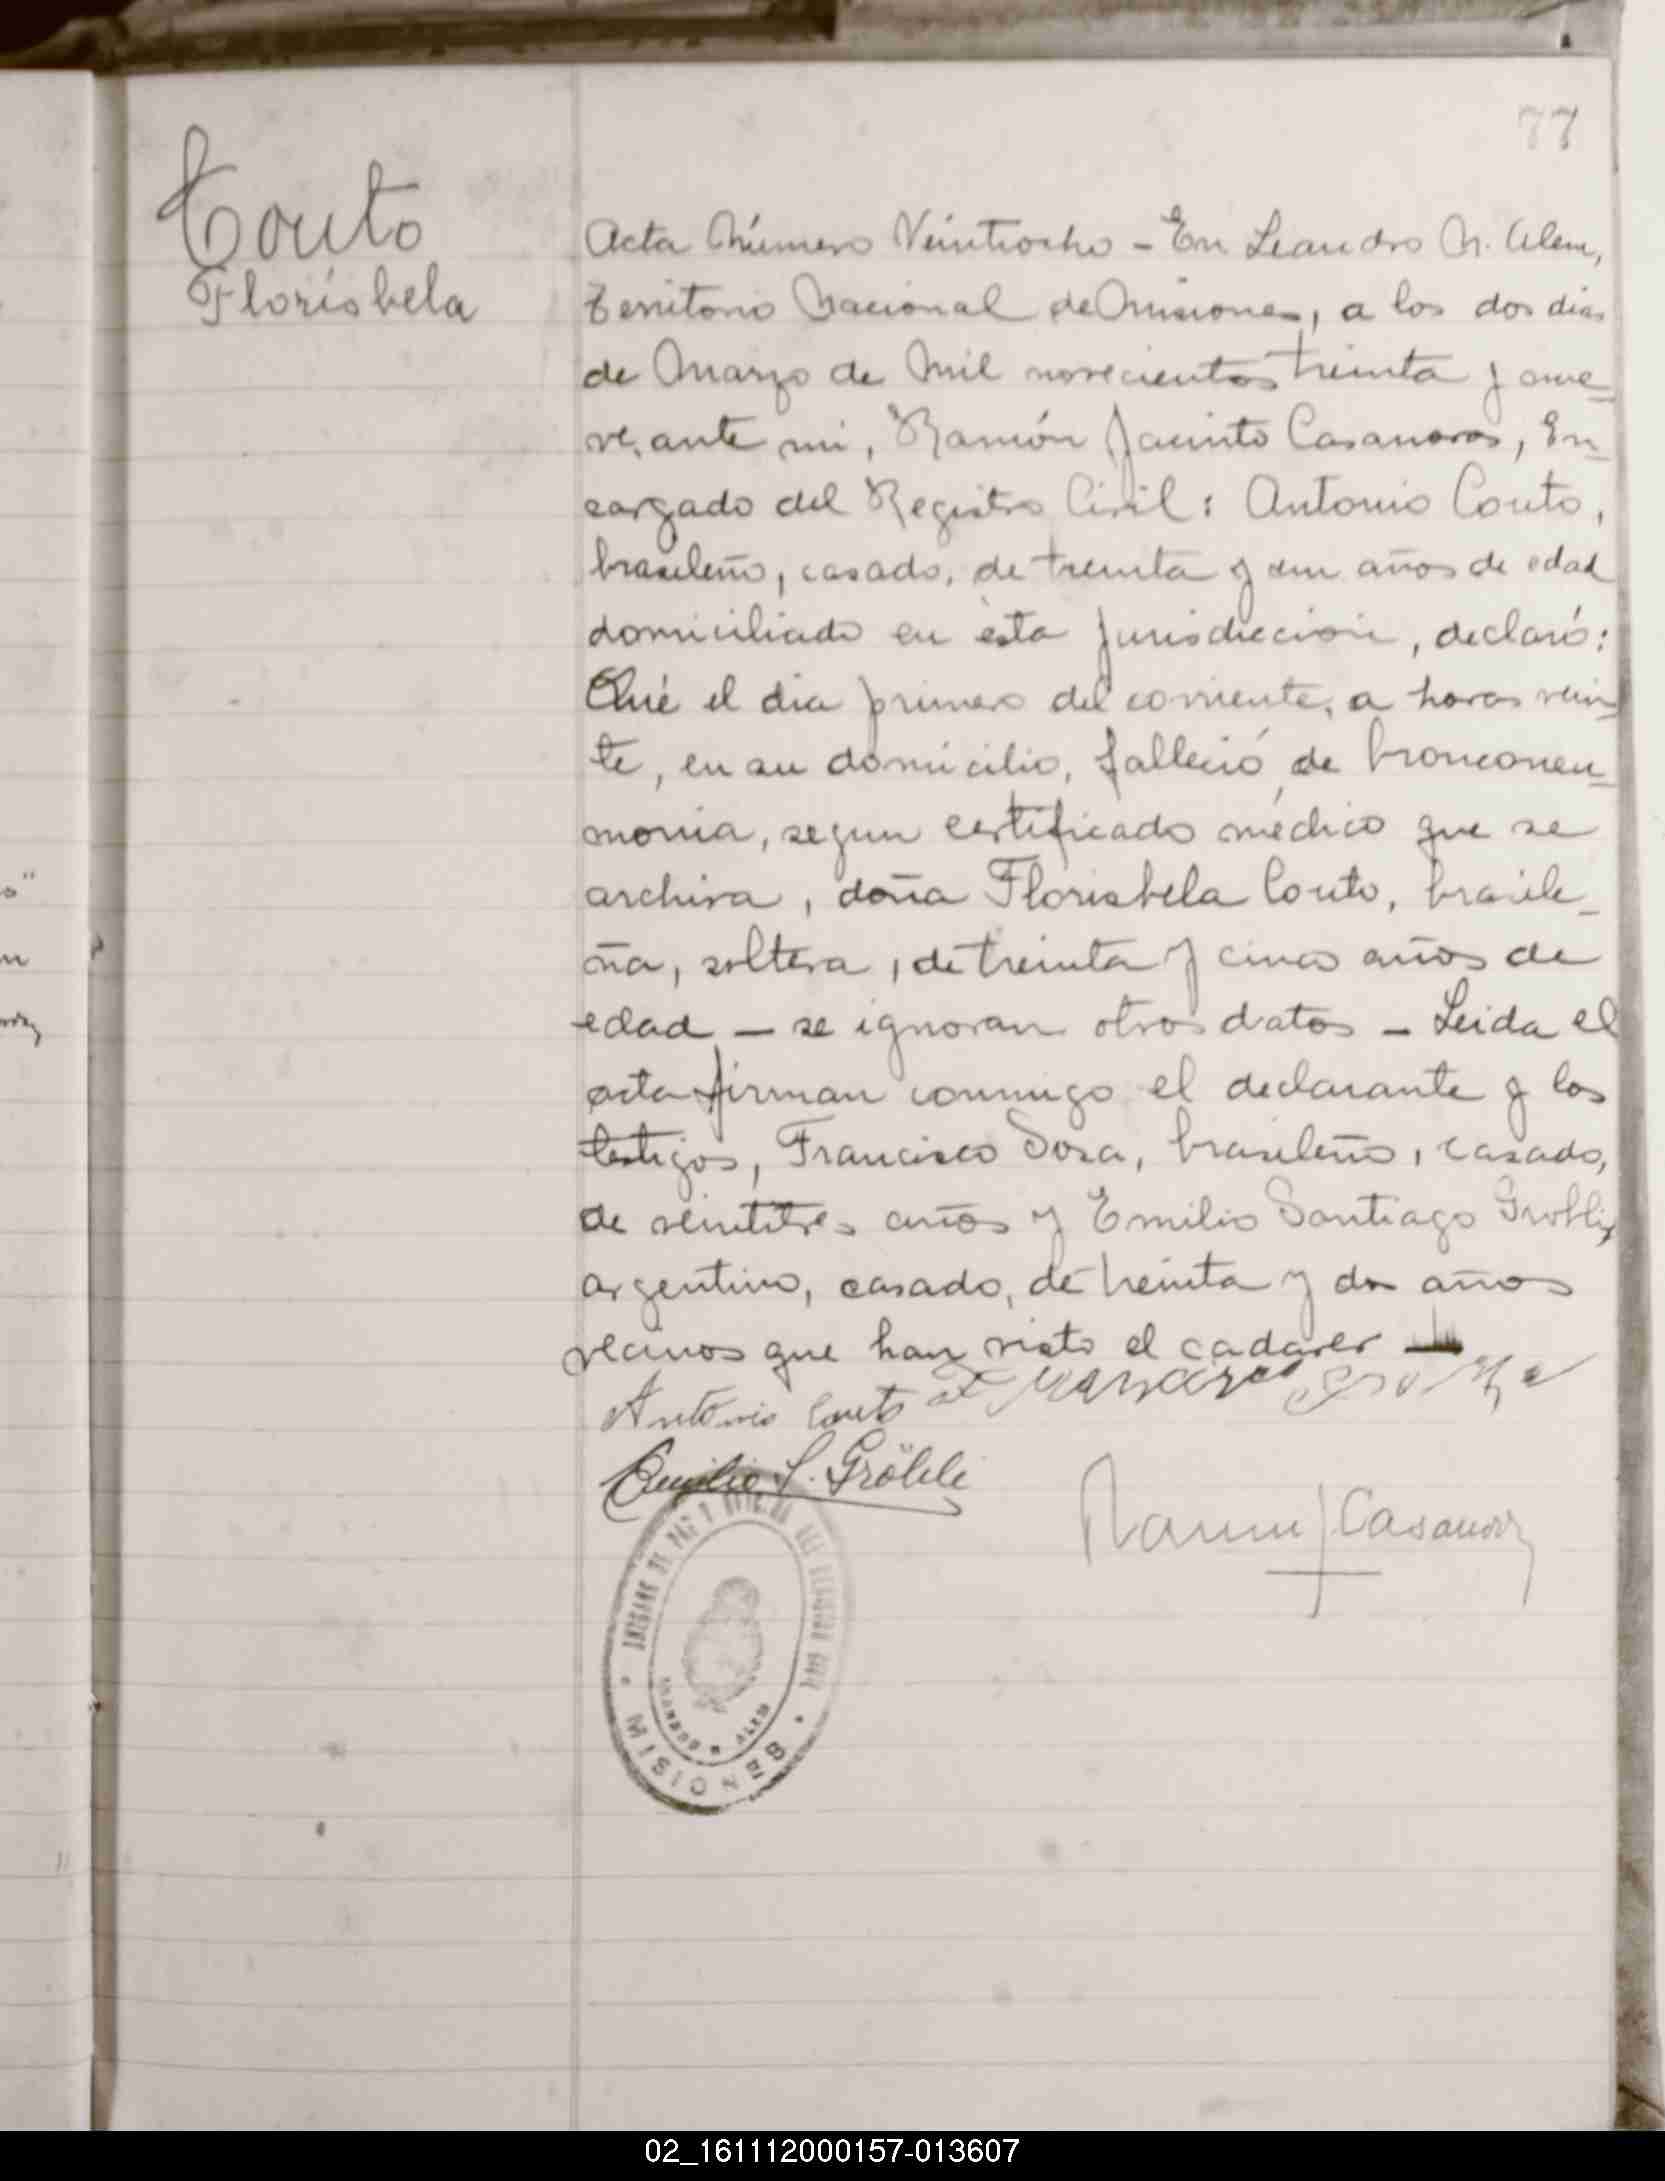 77
Couto
Florisbela
Acta Número Veintiocho - En Leandro N. Alem,
Territorio Nacional de Misiones, a los dos dias
de Marzo de Mil novecientos treinta y nue-
ve, ante mi, Ramón Jacinto Casanovas, En-
cargado del Registro Civil: Antonio Couto,
brasileño, casado, de treinta y un años de edad
domiciliado en ésta Jurisdiccion, declaró:
Qué el dia primero del corriente, a horas vein-
te, en su domicilio, falleció de bronconeu-
monia, segun certificado médico que se
archiva, doña Florisbela Couto, brasile-
ña, soltera, de treinta y cinco años de
edad - se ignoran otros datos - Leida el
acta firman conmigo el declarante y los
testigos, Francisco Sosa, brasileño, casado,
de veintitres años y Emilio Santiago Grobli,
argentino, casado, de treinta y dos años
vecinos que han visto el cadaver -
Antonio Couto
Emilio S. Gröbli
Ramon J Casanovas
JUZGADO DE PAZ Y OFICINA DEL REGISTRO CIVIL
LEANDRO N ALEM
MISIONES
02_161112000157-013607